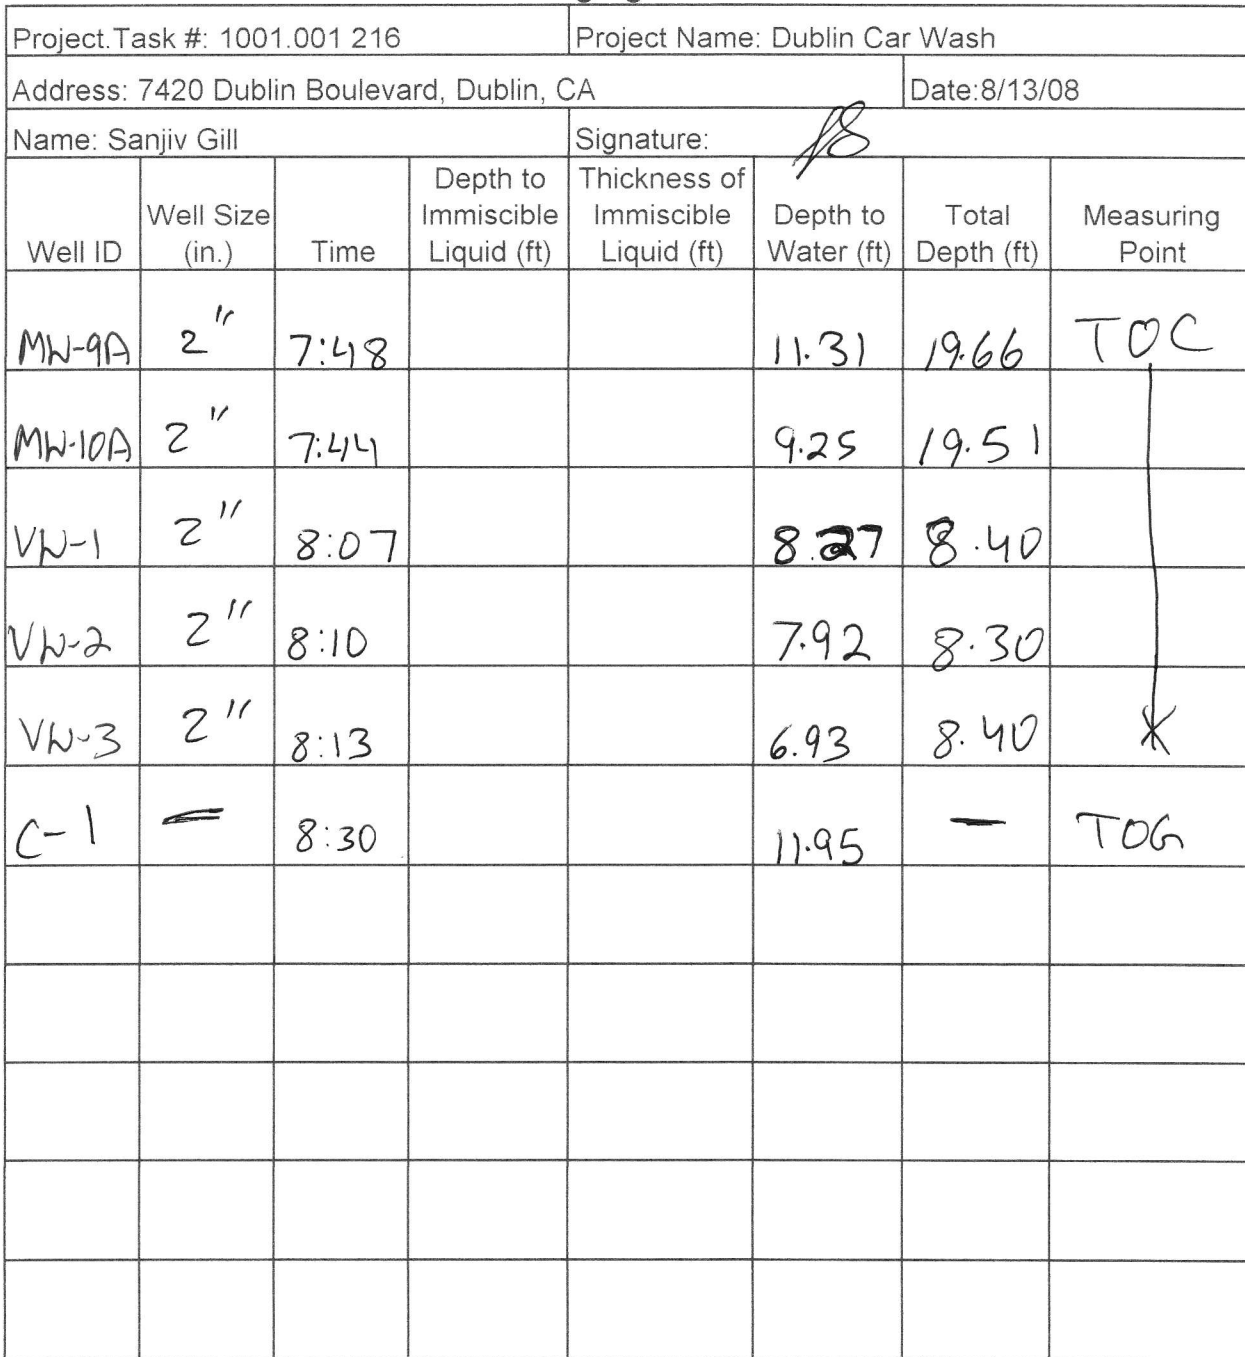 Project.Task #: 1001.001 216 Project Name: Dublin Car Wash
Address: 7420 Dublin Boulevard, Dublin, CA Date:8/13/08
Name: Sanjiv Gill Signature:
Well ID Well Size (in.) Time Depth to Immiscible Liquid (ft) Thickness of Immiscible Liquid (ft) Depth to Water (ft) Total Depth (ft) Measuring Point
MW-9A 2" 7:48 11.31 19.66 TOC
MW-10A 2" 7:44 9.25 19.51
VW-1 2" 8:07 8.27 8.40
VW-2 2" 8:10 7.92 8.30
VW-3 2" 8:13 6.93 8.40
C-1 — 8:30 11.95 — TOG